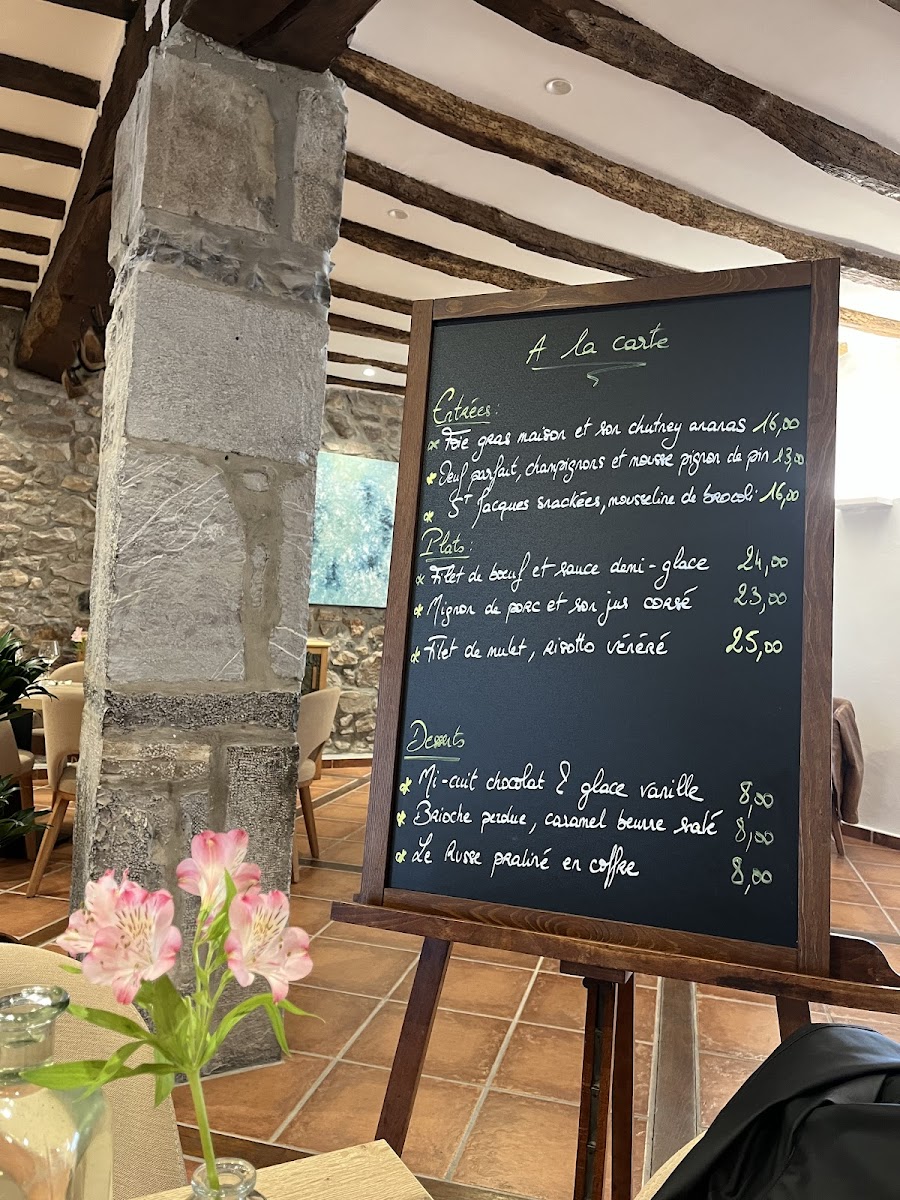 A la carte
Entrées:
Foie gras maison et son chutney ananas 16,00
Oeuf parfait, champignons et mousse pignon de pin 13,00
St Jacques snackées, mousseline de brocoli 16,00
Plats:
Filet de bœuf et sauce demi-glace 24,00
Mignon de porc et son jus corsé 23,00
Filet de mulet, risotto vénéré 25,00
Desserts
Mi-cuit chocolat & glace vanille 8,00
Brioche perdue, caramel beurre salé 8,00
Le Russe praliné en coffre 8,00